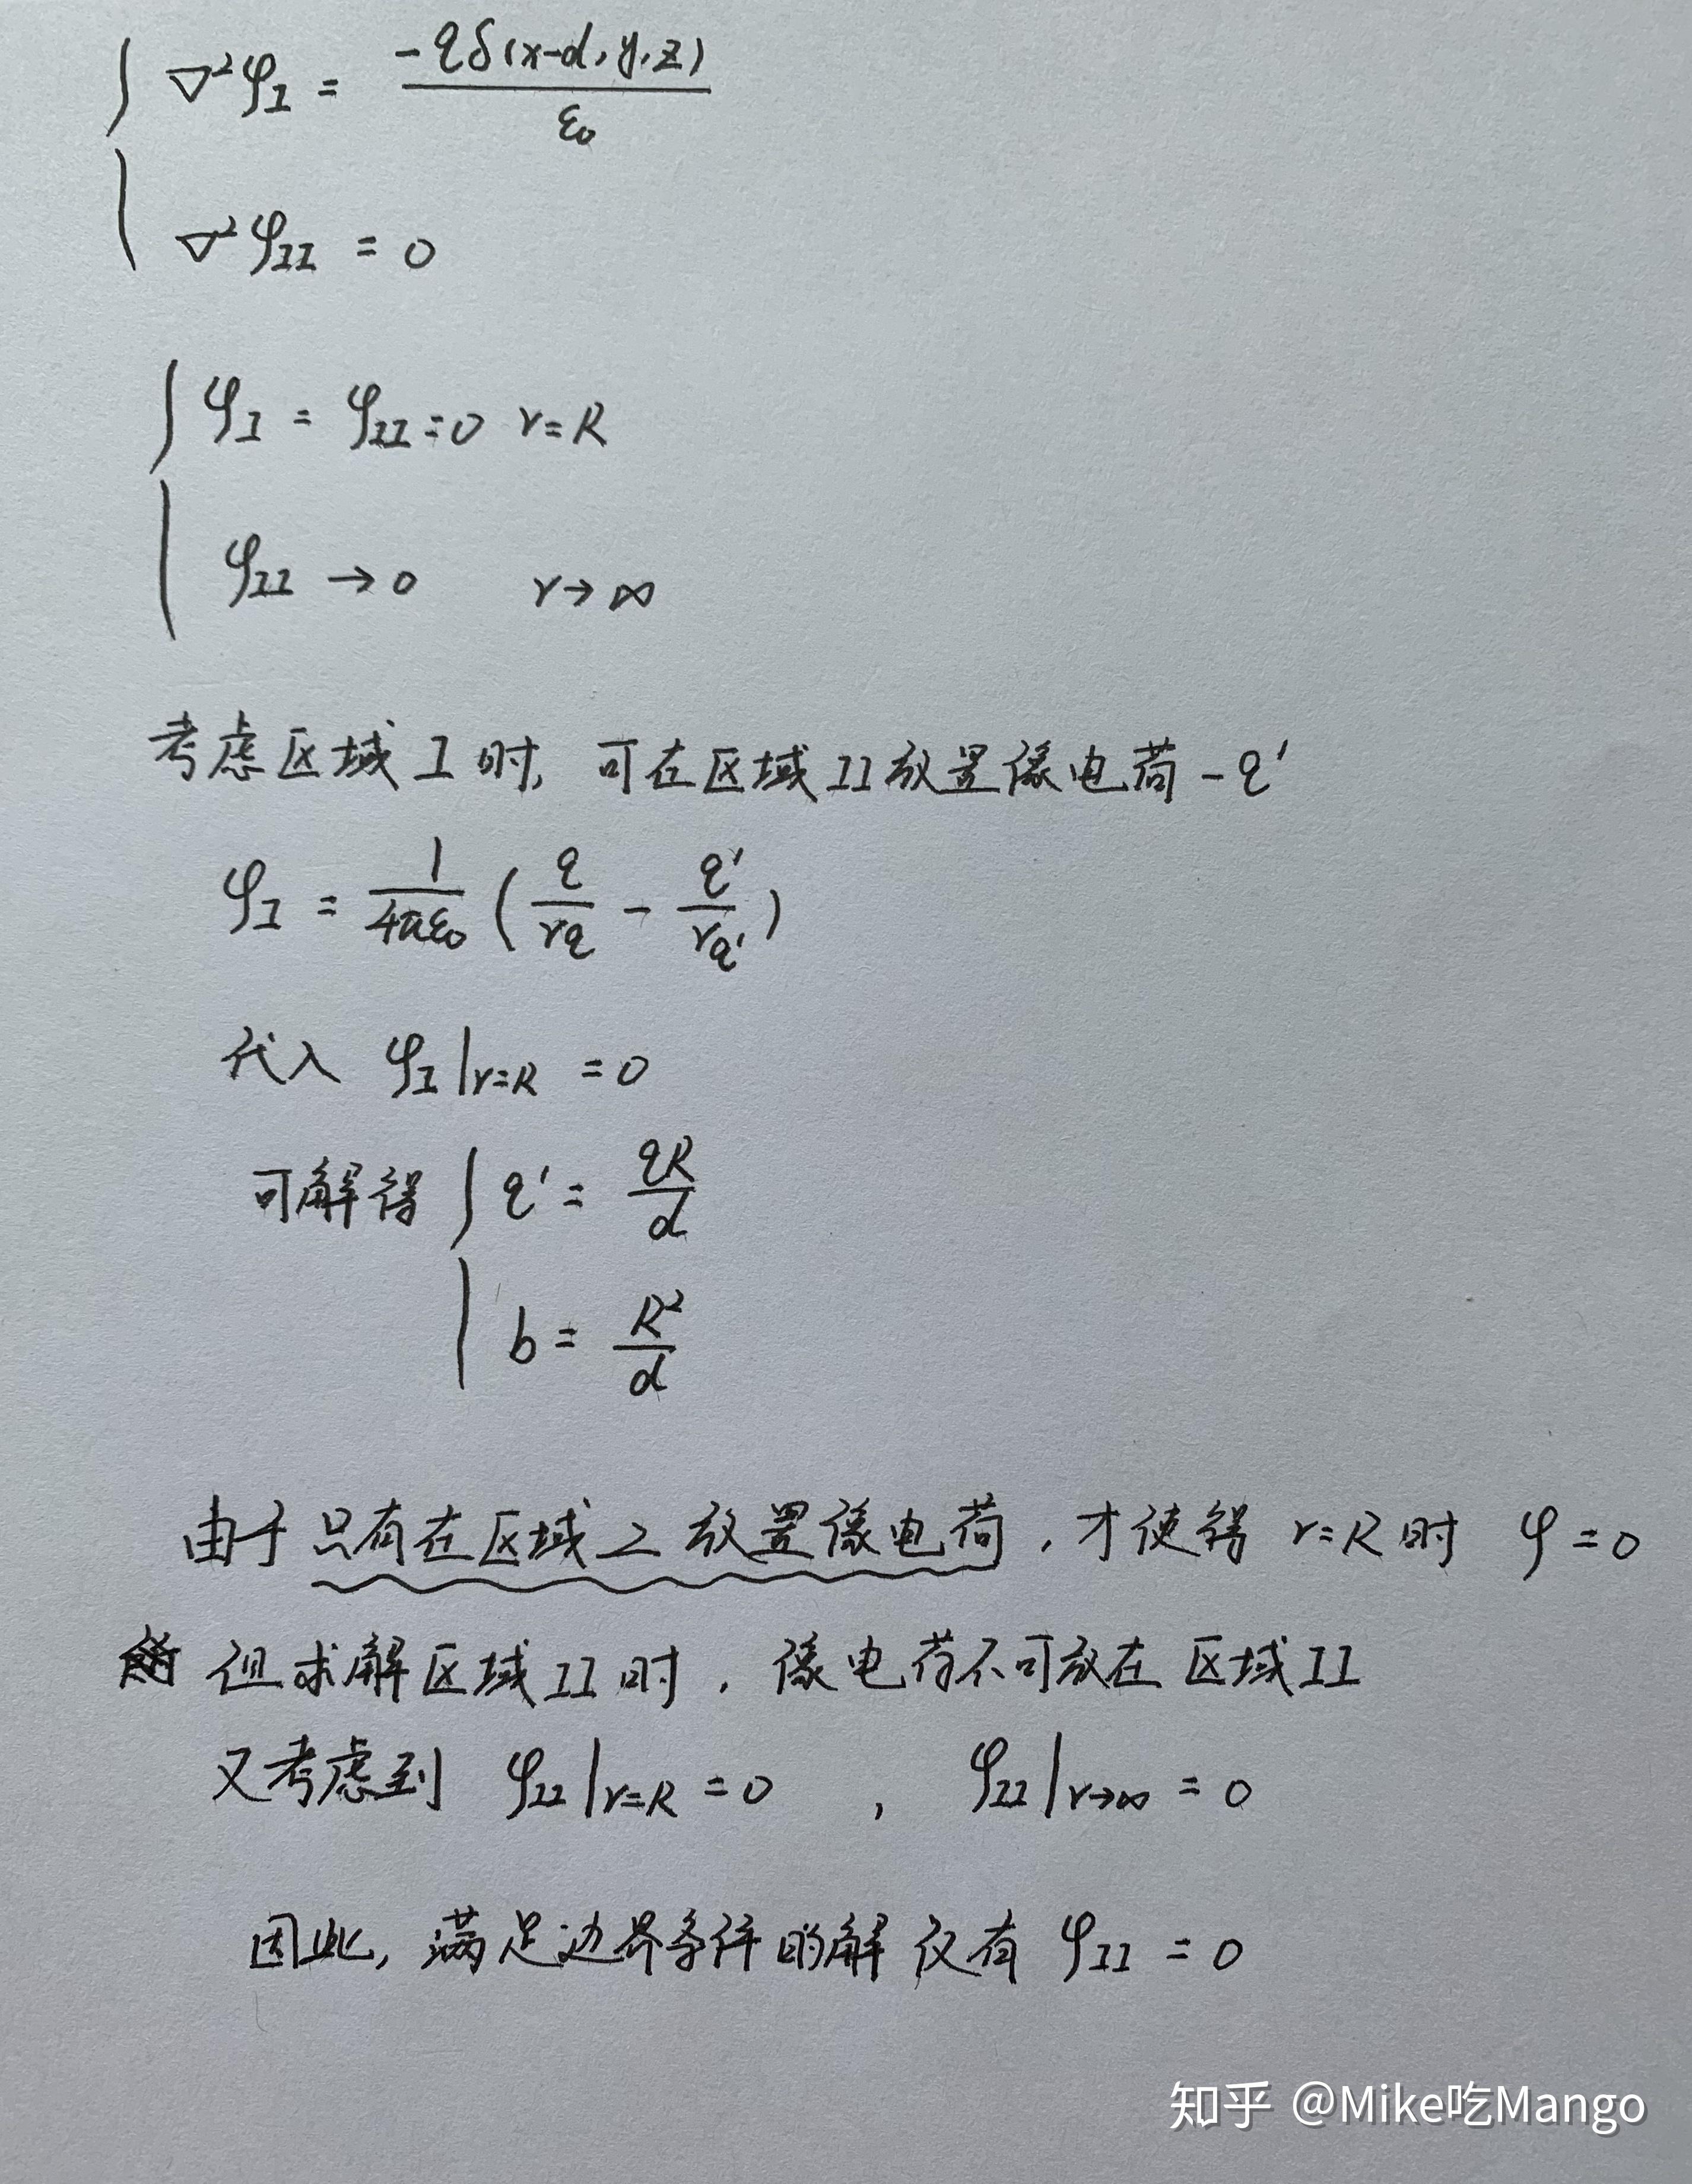 ∇²φ_I = -qδ(x-d, y, z) / ε₀
∇²φ_II = 0
φ_I = φ_II = 0 r=R
φ_II → 0 r→∞
考虑区域 I 时, 可在区域 II 放置像电荷 -q'
φ_I = 1/(4πε₀) (q/r_q - q'/r_q')
代入 φ_I|r=R = 0
可解得 { q' = qR/d
b = R²/d
由于只有在区域 2 放置像电荷, 才使得 r=R 时 φ=0
但求解区域 II 时, 像电荷不可放在 区域 II
又考虑到 φ_II|r=R = 0 , φ_II|r→∞ = 0
因此, 满足边界条件的解 仅有 φ_II = 0
知乎 @Mike吃Mango